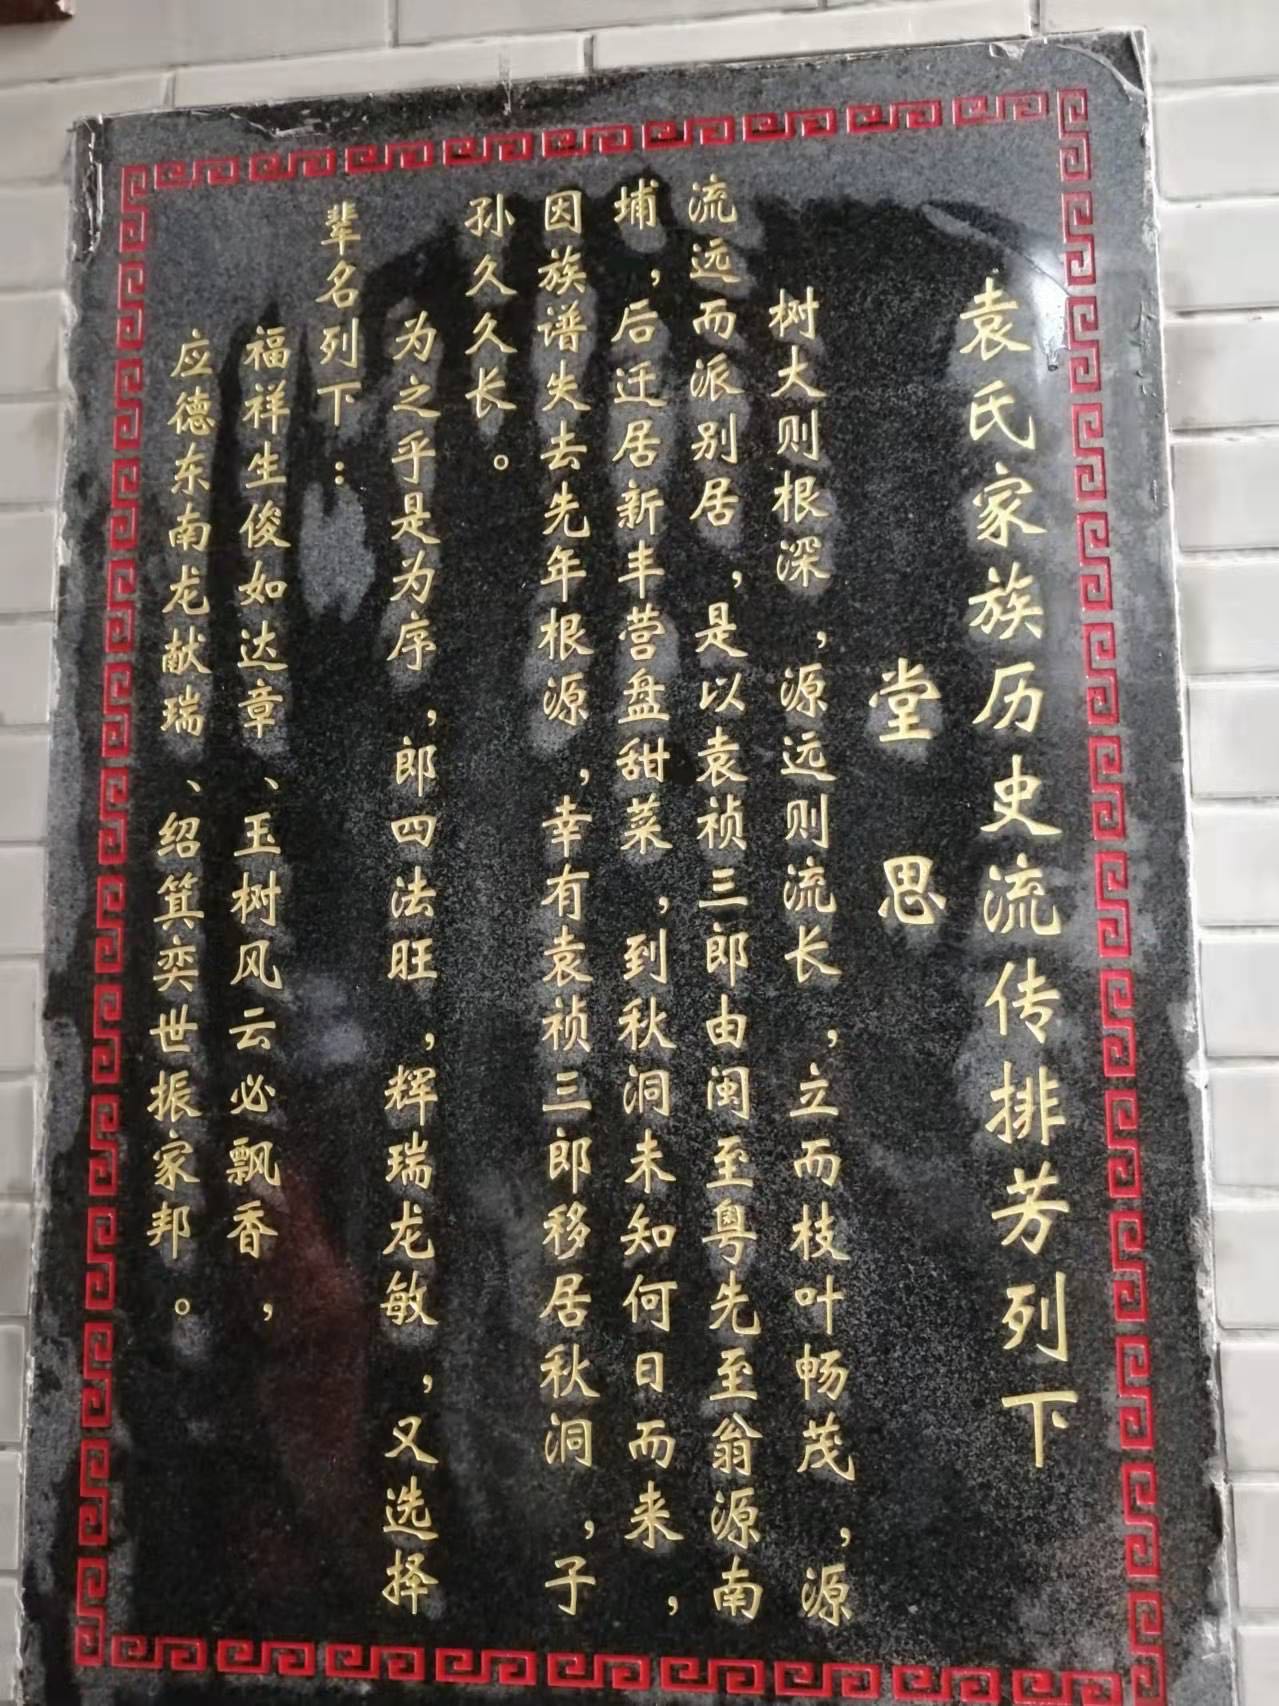 袁氏家族历史流传排芳列下
堂思
树大则根深，源远则流长，立而枝叶畅茂，源
流远而派别居，是以袁祯三郎由闽至粤先至翁源南
埔，后迁居新丰营盘甜菜，到秋洞未知何日而来，
因族谱失去先年根源，幸有袁祯三郎移居秋洞，子
孙久久长。
为之乎是为序，郎四法旺，辉瑞龙敏，又选择
辈名列下：
福祥生俊如达章、玉树风云必飘香，
应德东南龙献瑞、绍箕奕世振家邦。